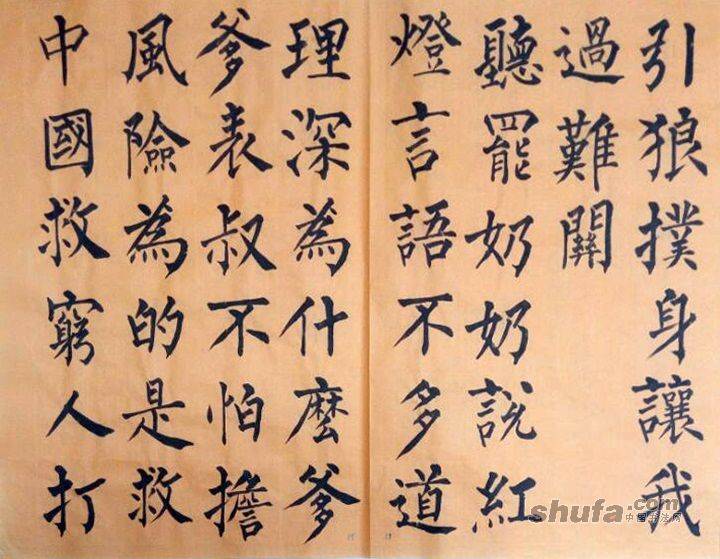 引狼撲身讓我
過難關
聽罷奶奶說紅
燈言語不多道
理深為什麼爹
爹表叔不怕擔
風險為的是救
中國救窮人打
shufa.com
中国书法网